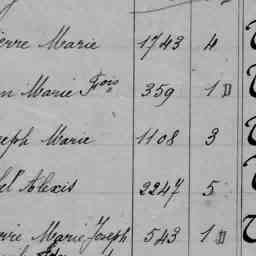 ierre Marie 1743 4
n Marie Frois 359 1 D
seph Marie 1108 3
el Alexis 2247 5
erre Marie Joseph 543 1 D